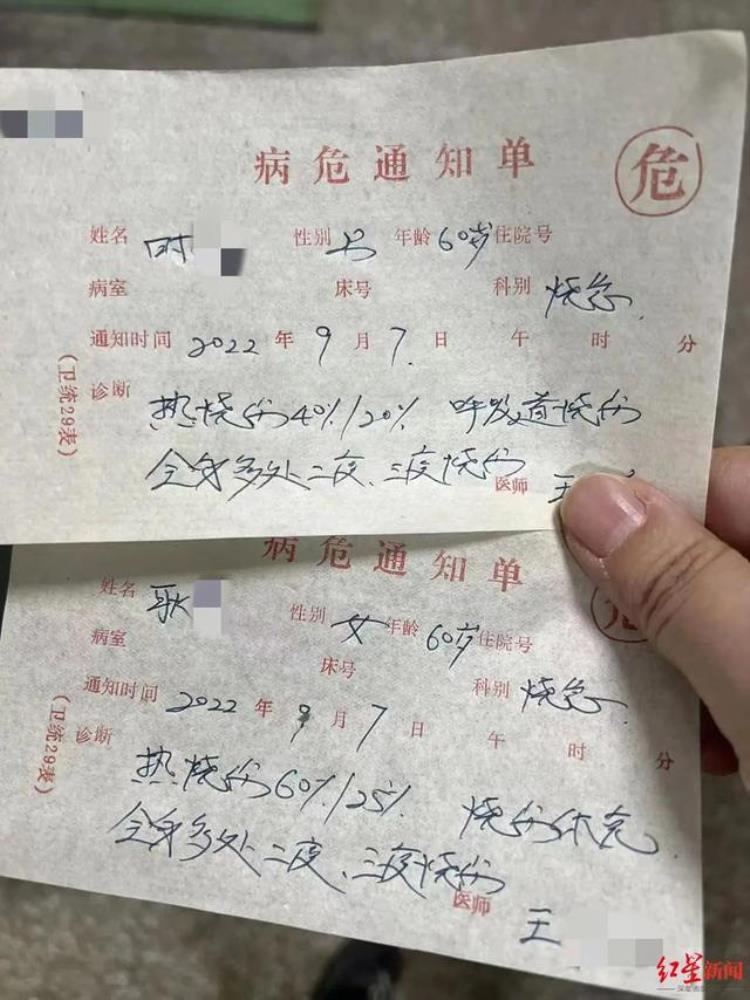 病危通知单 危
姓名 时 性别 男 年龄 60岁 住院号
病室 床号 科别 烧急
通知时间 2022 年 9 月 7 日 午 时 分
诊断 热烧伤40%/20% 呼吸道烧伤
全身多处二度、三度烧伤
医师 王
(卫统29表)
病危通知单 危
姓名 耿 性别 女 年龄 60岁 住院号
病室 床号 科别 烧急
通知时间 2022 年 9 月 7 日 午 时 分
诊断 热烧伤60%/25% 烧伤休克
全身多处二度、三度烧伤
医师 王
(卫统29表)
红星新闻